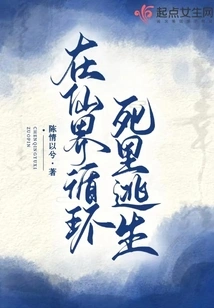 起点女生网
在仙界循环
死里逃生
陈情以兮·著
CHENQINGYIXI
ZUOPIN